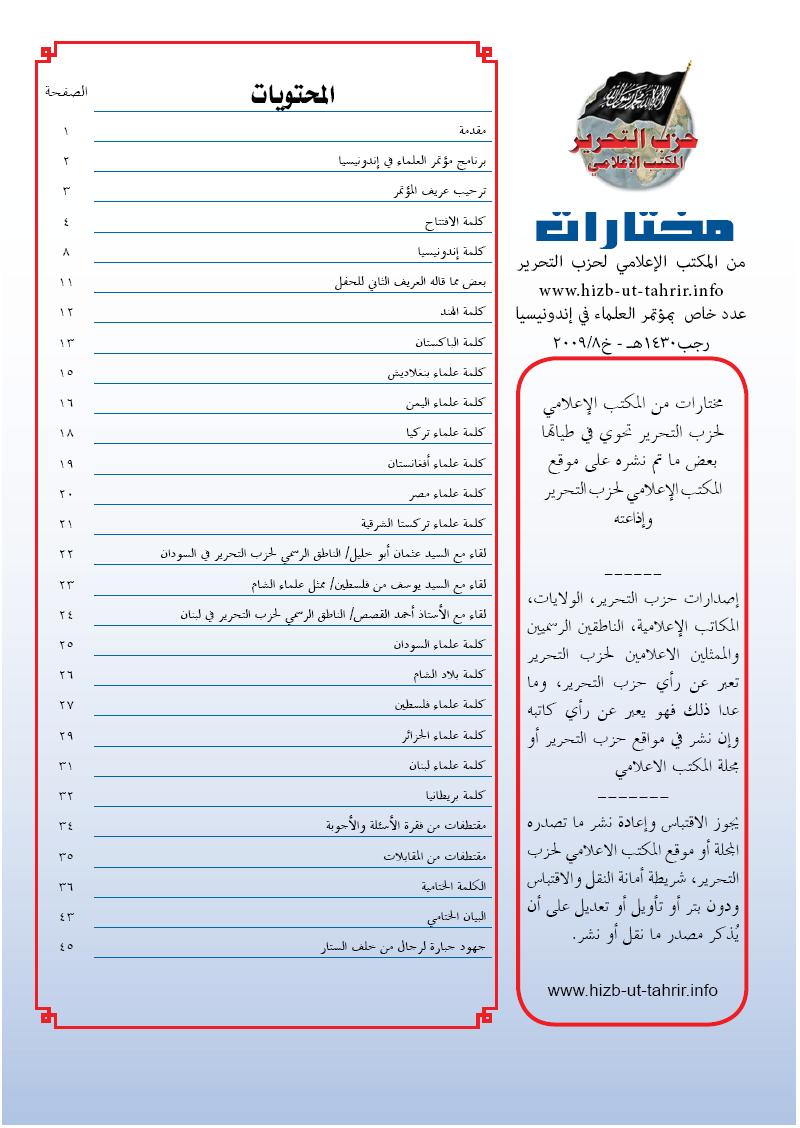 لا إله إلا الله محمد رسول الله
حزب التحرير
المكتب الإعلامي
مختارات
من المكتب الإعلامي لحزب التحرير
www.hizb-ut-tahrir.info
عدد خاص بمؤتمر العلماء في إندونيسيا
رجب١٤٣٠هـ - خ٢٠٠٩/٨
مختارات من المكتب الإعلامي
لحزب التحرير تحوي في طياتها
بعض ما تم نشره على موقع
المكتب الإعلامي لحزب التحرير
وإذاعته
------
إصدارات حزب التحرير، الولايات،
المكاتب الإعلامية، الناطقين الرسميين
والممثلين الاعلامين لحزب التحرير
تعبر عن رأي حزب التحرير، وما
عدا ذلك فهو يعبر عن رأي كاتبه
وإن نشر في مواقع حزب التحرير أو
مجلة المكتب الاعلامي
-------
يجوز الاقتباس وإعادة نشر ما تصدره
المجلة أو موقع المكتب الاعلامي لحزب
التحرير، شريطة أمانة النقل والاقتباس
ودون بتر أو تأويل أو تعديل على أن
يُذكر مصدر ما نقل أو نشر.
www.hizb-ut-tahrir.info
المحتويات الصفحة
مقدمة ١
برنامج مؤتمر العلماء في إندونيسيا ٢
ترحيب عريف المؤتمر ٣
كلمة الافتتاح ٤
كلمة إندونيسيا ٨
بعض مما قاله العريف الثاني للحفل ١١
كلمة الهند ١٢
كلمة الباكستان ١٣
كلمة علماء بنغلاديش ١٥
كلمة علماء اليمن ١٦
كلمة علماء تركيا ١٨
كلمة علماء أفغانستان ١٩
كلمة علماء مصر ٢٠
كلمة علماء تركستا الشرقية ٢١
لقاء مع السيد عثمان أبو خليل/ الناطق الرسمي لحزب التحرير في السودان ٢٢
لقاء مع السيد يوسف من فلسطين/ ممثل علماء الشام ٢٣
لقاء مع الأستاذ أحمد القصص/ الناطق الرسمي لحزب التحرير في لبنان ٢٤
كلمة علماء السودان ٢٥
كلمة بلاد الشام ٢٦
كلمة علماء فلسطين ٢٧
كلمة علماء الجزائر ٢٩
كلمة علماء لبنان ٣١
كلمة بريطانيا ٣٢
مقتطفات من فقرة الأسئلة والأجوبة ٣٤
مقتطفات من المقابلات ٣٥
الكلمة الختامية ٣٦
البيان الختامي ٤٣
جهود جبارة لرجال من خلف الستار ٤٥